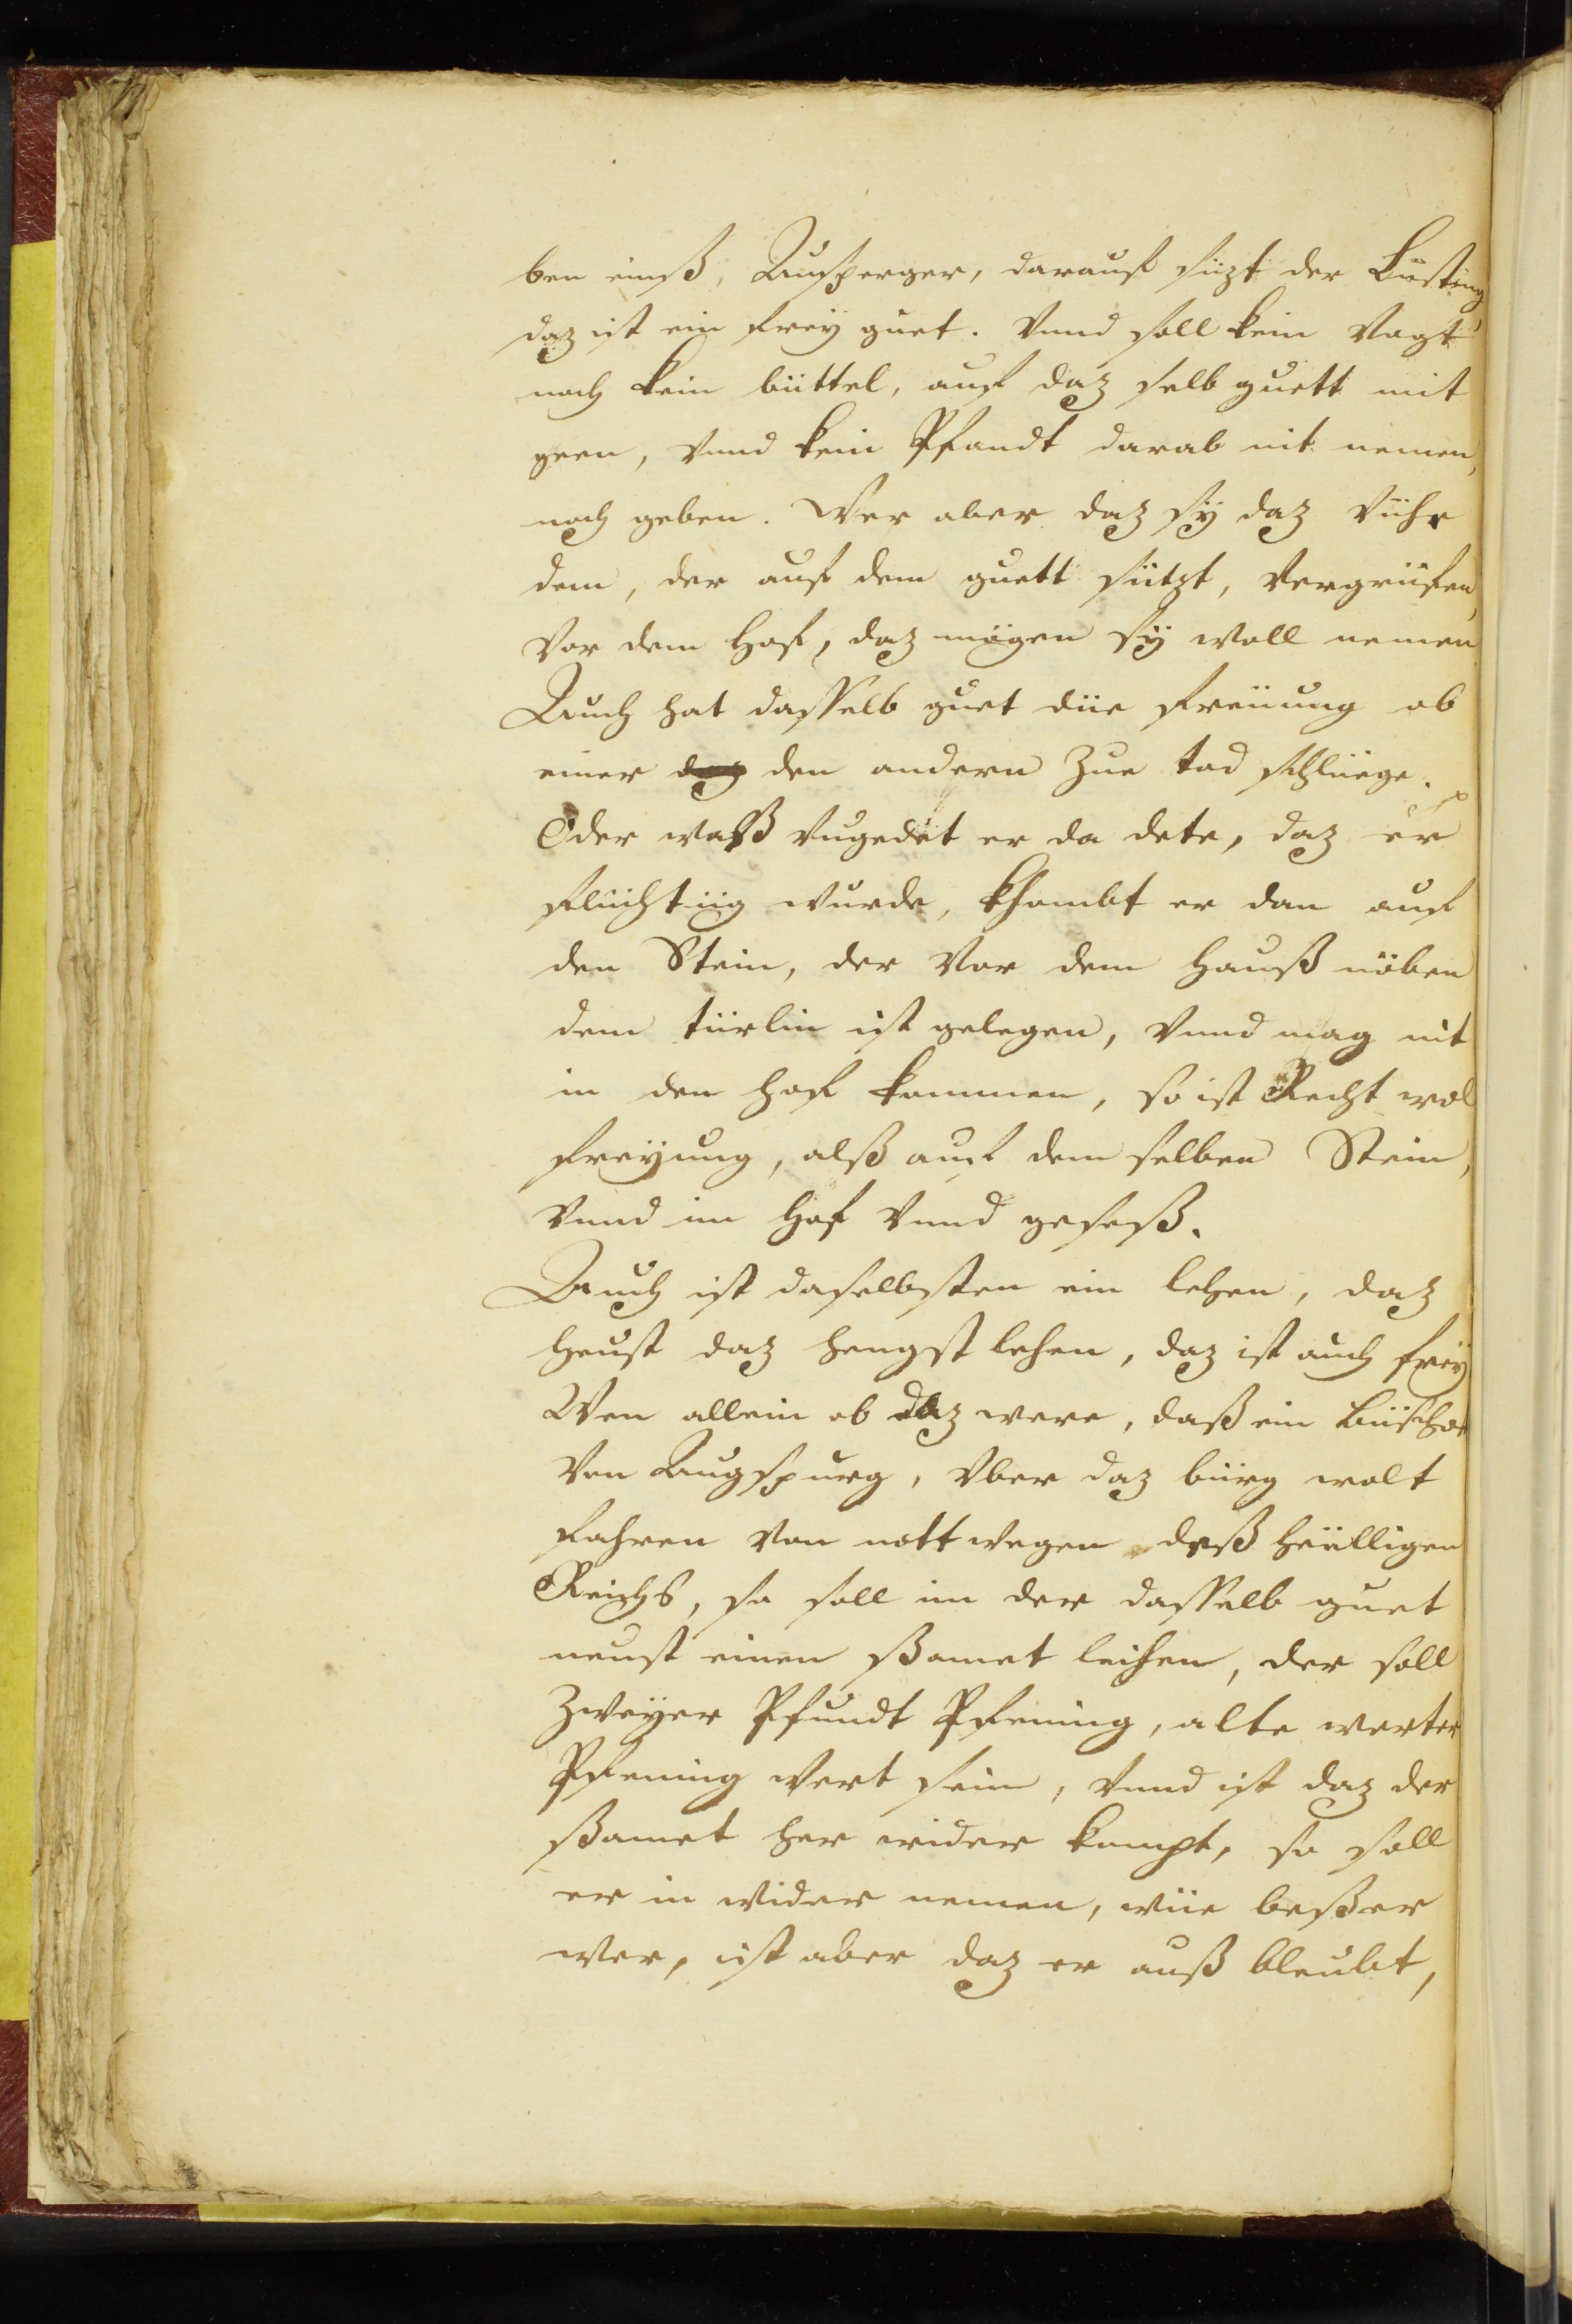 ben einß, Aufperger, darauf süzt der Lüsting
daz ist ein frey guet. Vnnd soll kein Vogt
noch kein büttel, auf daz selb guett nit
geen, Vnnd kein Pfandt darab nit nemen,
noch geben. Wer aber daz sÿ daz Viehe
dem, der auf dem guett sützt, Vergriifen,
Vor dem Hof, daz mögen sÿ woll nemen
Auch hat dasselb guet die freiung ob
einer daz den andern Zue tod schliege.
Oder waß Vngedät er da dete, daz er
flüchtiig wurde, khombt er dan auf
den Stein, der Vor dem Hauß nöben
dem türlin ist gelegen, Vnnd mag nit
in den hof kommen, so ist Recht wol
freyung, alß auf dem selben Stein,
Vnnd im Hof Vnnd geseß.
Auch ist daselbsten ein lehen, daz
heist daz hengst lehen, daz ist auch frey
Wen allein ob daz were, daß ein Büschof
Von Augspurg, Vber daz bürg wolt
fahren Von nott wegen deß heilligen
Reichs, so soll im der dasselb guet
neust einen ßamet leihen, der soll
Zweyer Pfundt Pfening, alte werter
Pfening wert sein, Vnnd ist daz der
ßamet her wider kompt, so soll
er in wider nemen, wie beßer
wer, ist aber daz er auß bleibt,